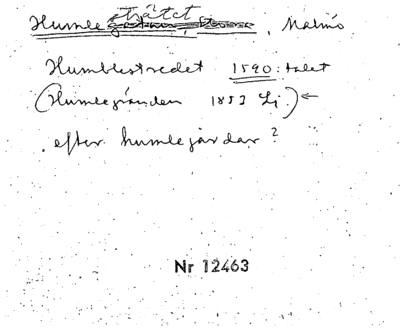 Humlesträtet, Malmö
Humblestredet 1590: talet
(Humlegränden 1853 Lj.) ←
efter humlegårdar?
Nr 12463